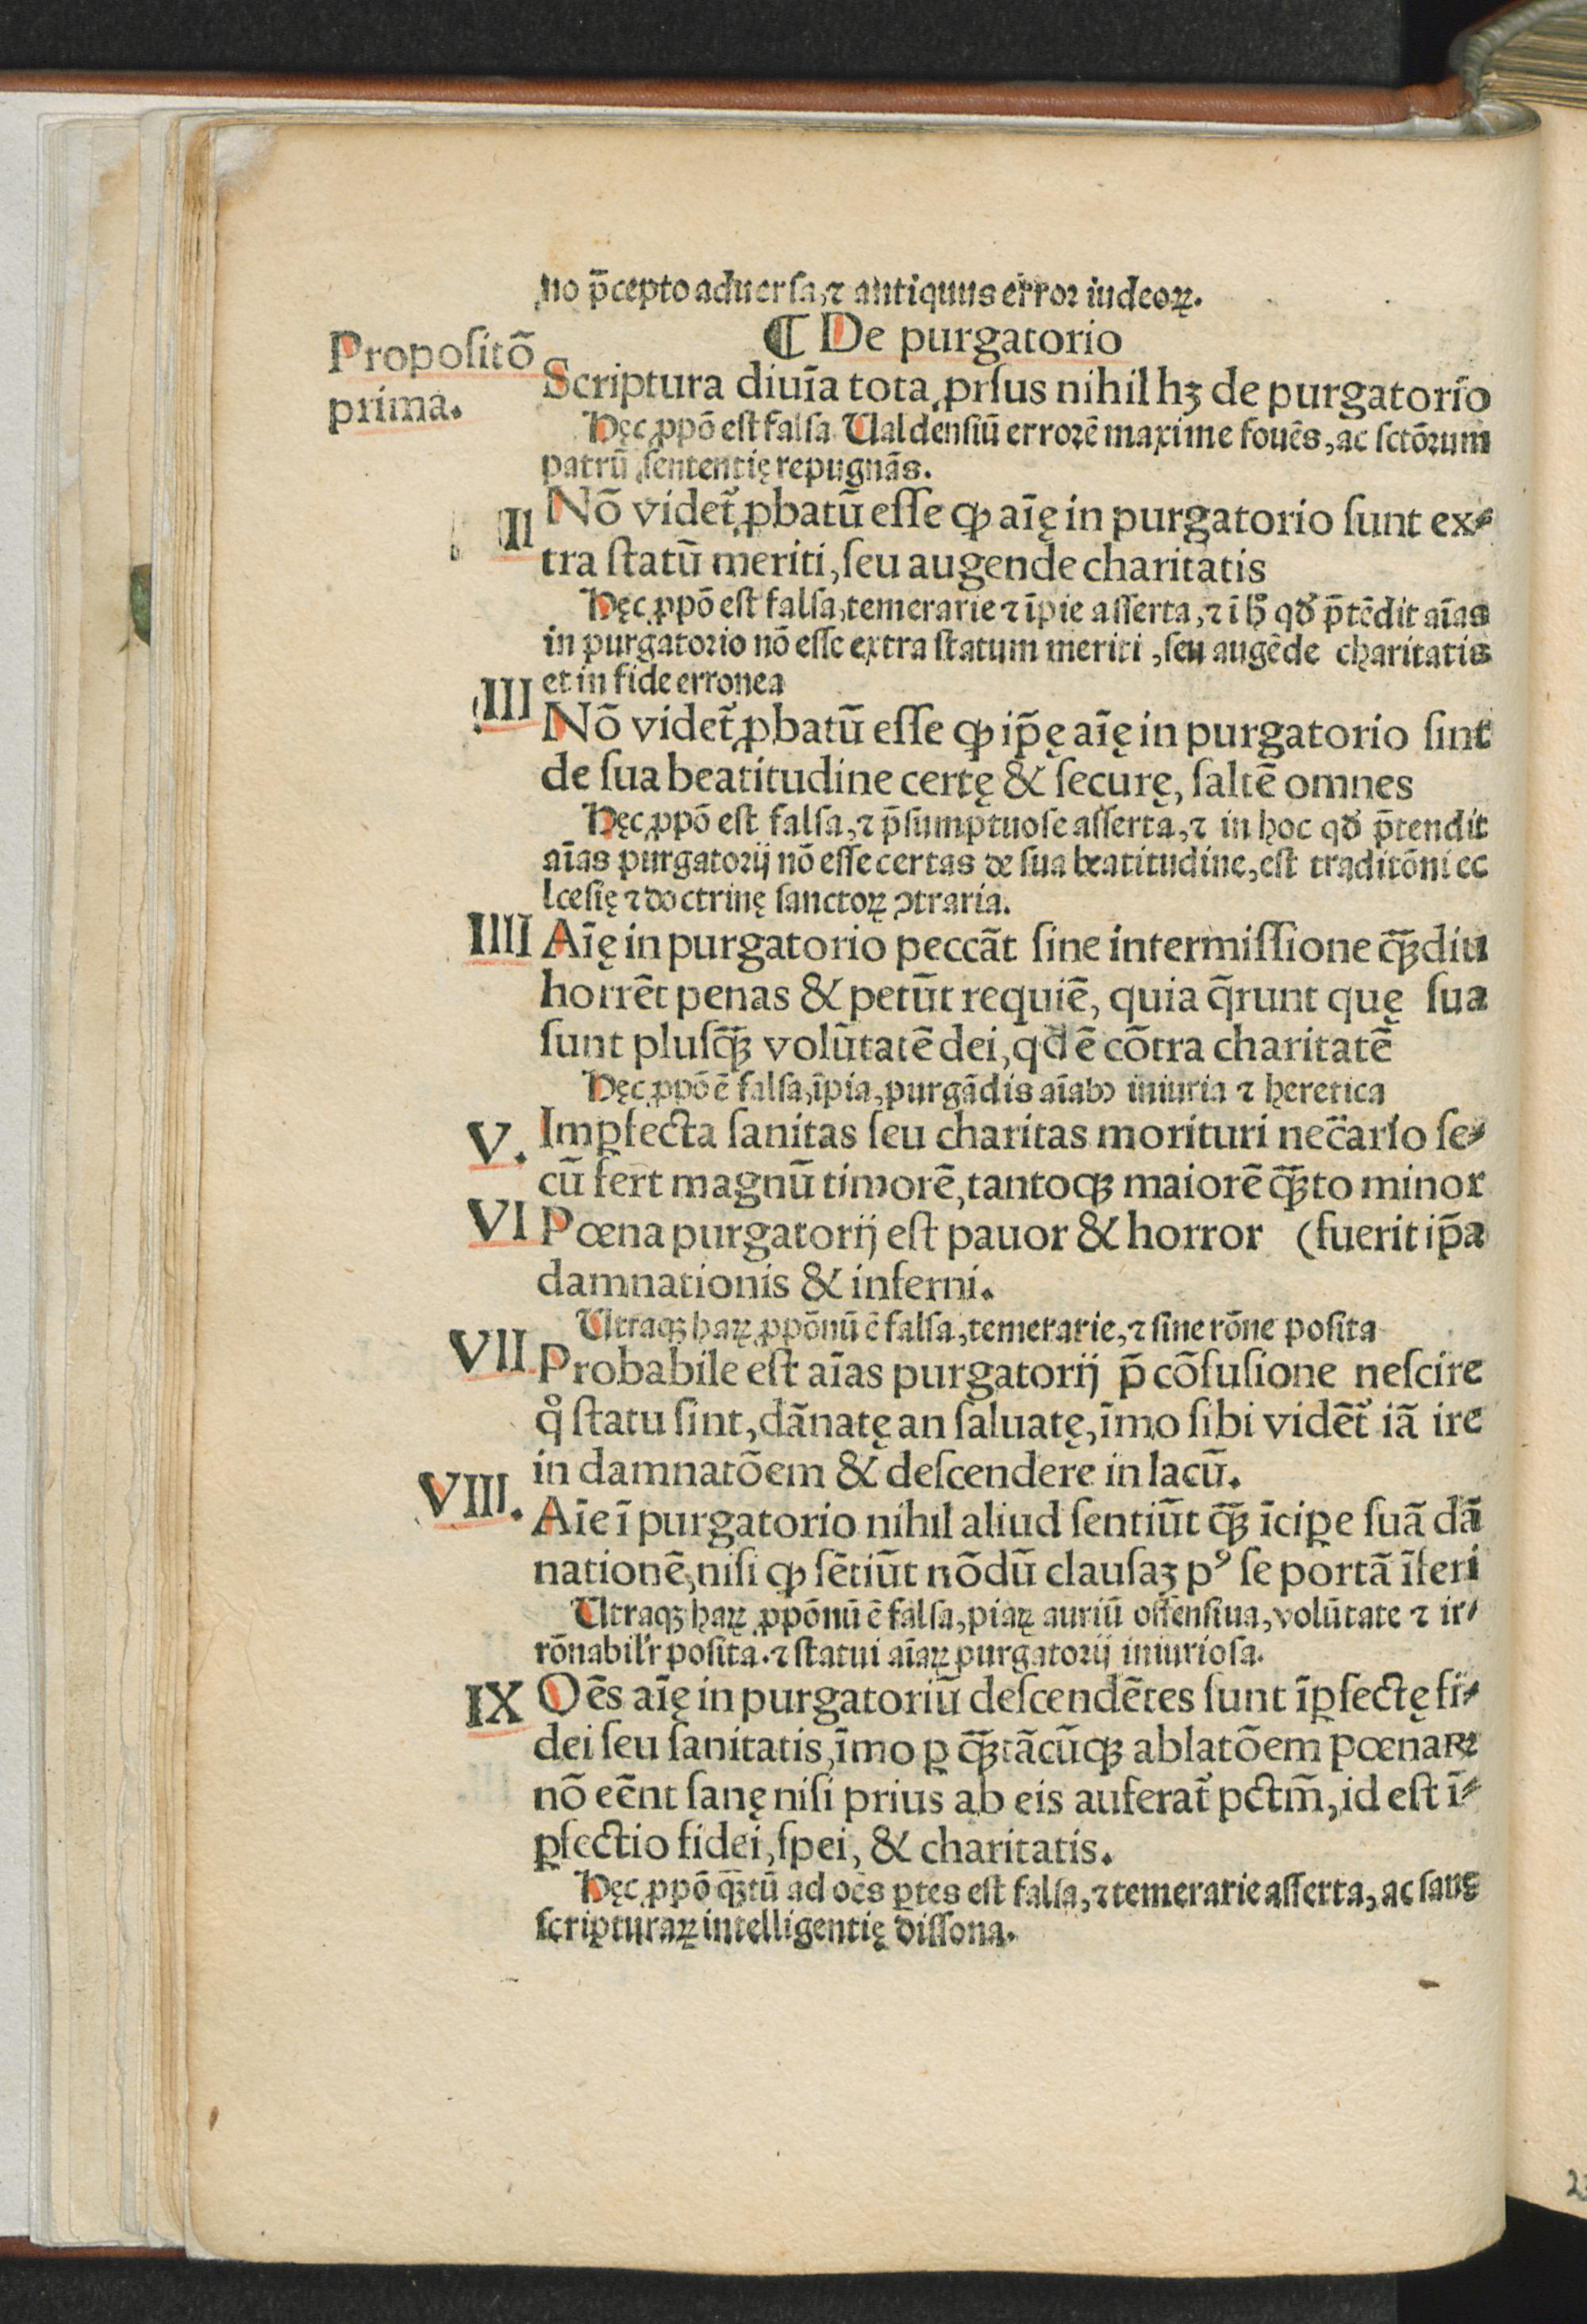 no p̄cepto aduersa, ⁊ antiquus error iudeoꝝ.
¶ De purgatorio
Propositō
prima.
Scriptura diuīa tota ꝓrsus nihil hꝫ de purgatorio
Hęc ꝓpō est falsa Ualdensiū errorē maxime fouēs, ac sctōrum
patrū sententię repugnās.
II Nō videt᷑ ꝓbatū esse ꝙ aīę in purgatorio sunt ex⸗
tra statū meriti, seu augende charitatis
Hęc ꝓpō est falsa, temerarie ⁊ īpie asserta, ⁊ ī hͦ qđ p̄tēdit aīas
in purgatorio nō esse extra statum meriti, seu augēde charitatis
et in fide erronea
III Nō videt᷑ ꝓbatū esse ꝙ ip̄ę aīę in purgatorio sint
de sua beatitudine certę & securę, saltē omnes
Hęc ꝓpō est falsa, ⁊ p̄sumptuose asserta, ⁊ in hoc qđ p̄tendit
aīas purgatorij nō esse certas de sua beatitudine, est traditōni ec
lcesię ⁊ doctrinę sanctoꝝ ↄtraria.
IIII Aīę in purgatorio peccāt sine intermissione qꝫ̄diu
horrēt penas & petūt requiē, quia q̄runt quę sua
sunt plusqꝫ̄ volūtatē dei, qđ ē cōtra charitatē
Hęc ꝓpō ē falsa, īpia, purgādis aīabꝰ iniuria ⁊ hęretica
V. Imꝑfecta sanitas seu charitas morituri nec̄ario se⸗
cū fert magnū timorē, tantoqꝫ maiorē qꝫ̄to minor
VI Pœna purgatorij est pauor & horror (fuerit ip̄a
damnationis & inferni.
Utraqꝫ haꝝ ꝓpōnū ē falsa, temerarie, ⁊ sine rōne posita
VII Probabile est aīas purgatorij p̄ cōfusione nescire
qͦ statu sint, dānatę an saluatę, īmo sibi vidēt᷑ iā ire
in damnatōem & descendere in lacū.
VIII. Aīe ī purgatorio nihil aliud sentiūt qꝫ̄ īciꝑe suā dā
nationē, nisi ꝙ sētiūt nōdū clausaꝫ pꝰ se portā īferi
Utraqꝫ haꝝ ꝓpōnū ē falsa, piaꝝ auriū offensiua, volūtate ⁊ ir⸗
rōnabil'r posita. ⁊ statui aīaꝝ purgatorij iniuriosa.
IX Oēs aīę in purgatoriū descendētes sunt īꝑfectę fi⸗
dei seu sanitatis, īmo ꝑ qꝫ̄tācūqꝫ ablatōem pœnaꝝ
nō eēnt sanę nisi prius ab eis auferat᷑ pctm̄, id est ī⸗
ꝑfectio fidei, spei, & charitatis.
Hęc ꝓpō qꝫ̄tū ad oēs ꝑtes est falsa, ⁊ temerarie asserta, ac sanę
scripturaꝝ intelligentię dissona.